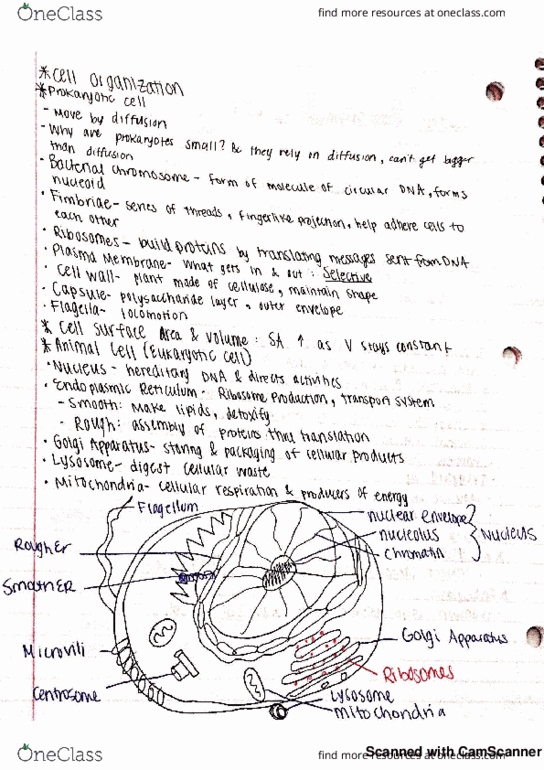 OneClass
find more resources at oneclass.com
* Cell Organization
* Prokaryotic cell
- Move by diffusion
- Why are prokaryotes small? & they rely on diffusion, can't get bigger
than diffusion
- Bacterial Chromosome - form of molecule of circular DNA, forms
nucleoid
• Fimbriae - series of threads, fingerlike projection, help adhere cells to
each other
• Ribosomes - build proteins by translating messages sent from DNA
• Plasma Membrane - what gets in & out: Selective
• Cell wall - plant made of cellulose, maintain shape
• Capsule - polysaccharide layer, outer envelope
• Flagella - locomotion
* Cell Surface Area & volume: SA ↑ as V stays constant
* Animal Cell (Eukaryotic Cell)
• Nucleus - hereditary DNA & directs activities
• Endoplasmic Reticulum - Ribosome Production, transport system
- Smooth: Make lipids, detoxify
- Rough: assembly of proteins thru translation
• Golgi Apparatus - storing & packaging of cellular products
• Lysosome - digest cellular waste
• Mitochondria - cellular respiration & producers of energy
Flagellum
nuclear envelope
nucleolus
chromatin
Nucleus
Rough ER
Smooth ER
Microvili
Centrosome
Golgi Apparatus
Ribosomes
Lysosome
Mitochondria
OneClass
find more resources at oneclass.com
Scanned with CamScanner